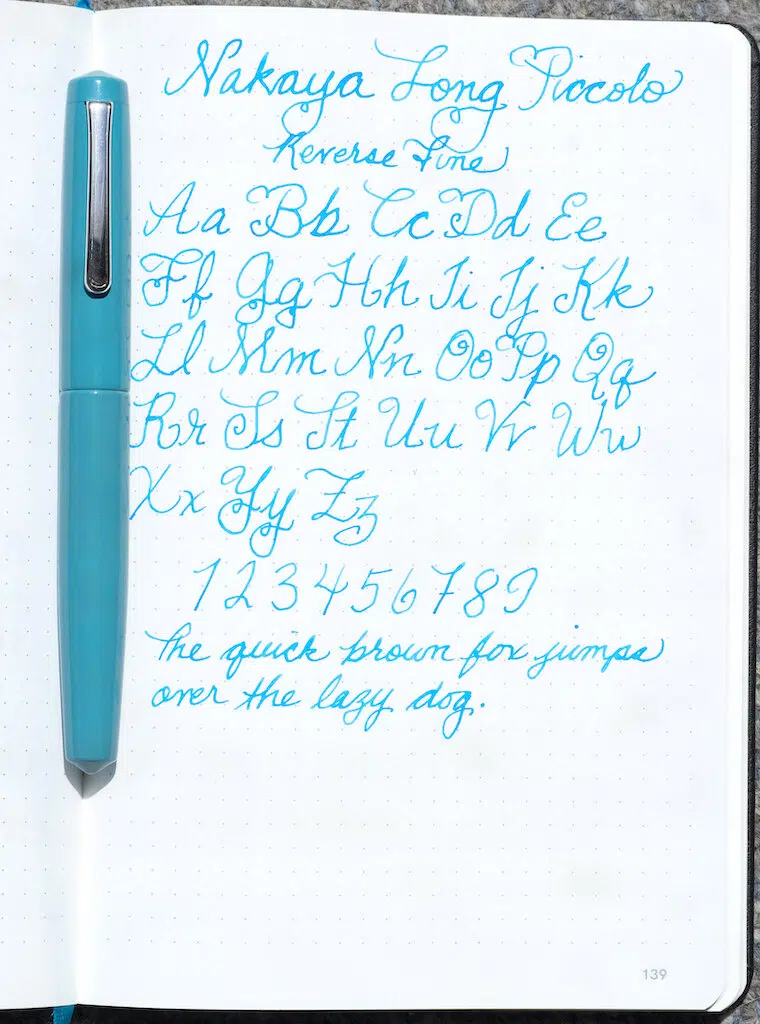 Nakaya Long Piccolo
Reverse Fine
Aa Bb Cc Dd Ee
Ff Gg Hh Ii Jj Kk
Ll Mm Nn Oo Pp Qq
Rr Ss Tt Uu Vv Ww
Xx Yy Zz
1 2 3 4 5 6 7 8 9
The quick brown fox jumps
over the lazy dog.
139